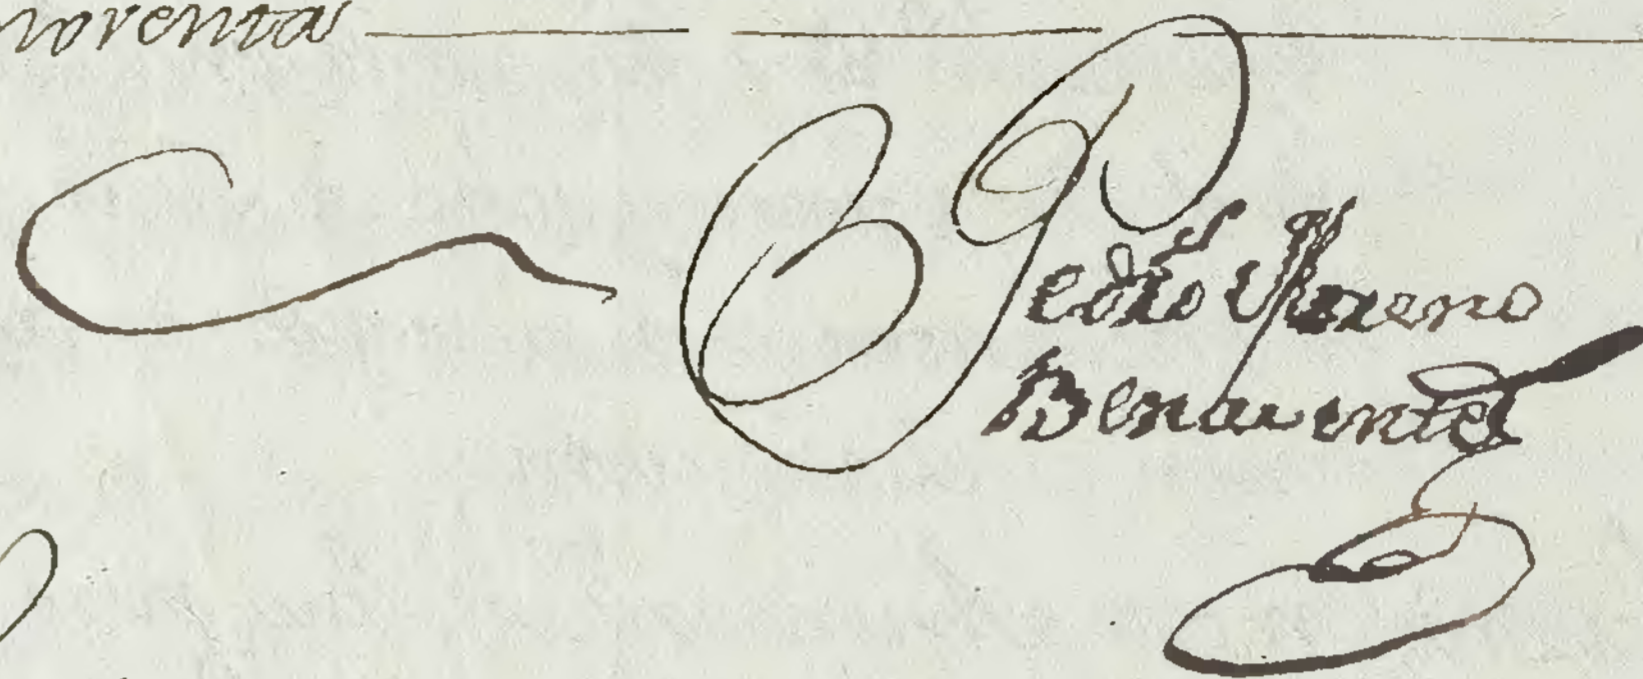 noventa
Pedro Moreno
Benavente